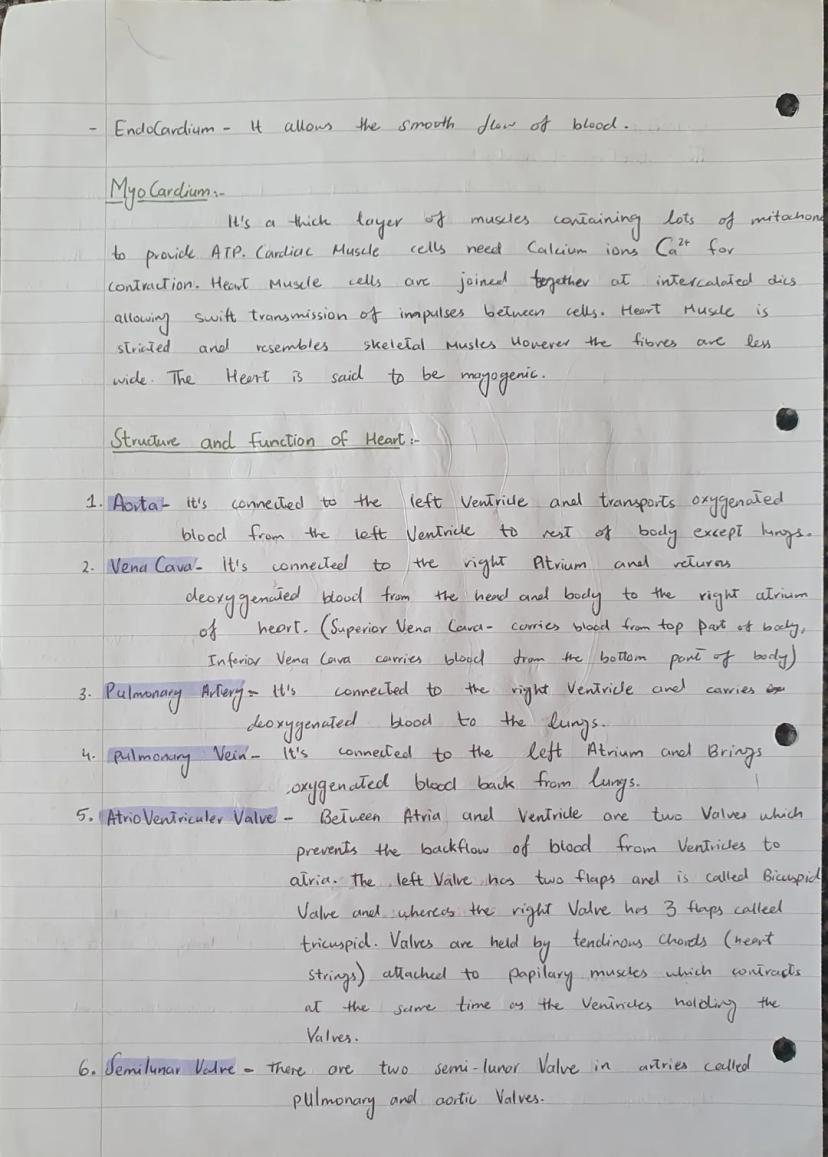 - EndoCardium - It allows the smooth flow of blood.
MyoCardium:-
It's a thick layer of muscles containing lots of mitochon
to provide ATP. Cardiac Muscle cells need Calcium ions Ca²⁺ for
contraction. Heart Muscle cells are joined together at intercalated dics
allowing swift transmission of impulses between cells. Heart Muscle is
stricted and resembles skeletal Musles However the fibres are less
wide. The Heart is said to be mayogenic.
Structure and Function of Heart:-
1. Aorta - It's connected to the left Ventricle and transports oxygenated
blood from the left Ventricle to rest of body except lungs.
2. Vena Cava - It's connected to the right Atrium and returns
deoxygenated blood from the head and body to the right atrium
of heart. (Superior Vena Cava - carries blood from top part of body,
Inferior Vena Cava carries blood from the bottom part of body)
3. Pulmonary Artery - It's connected to the right Ventricle and carries
deoxygenated blood to the lungs.
4. Pulmonary Vein - It's connected to the left Atrium and Brings
oxygenated blood back from lungs.
5. AtrioVentriculer Valve - Between Atria and Ventricle are two Valves which
prevents the backflow of blood from Ventricles to
atria. The left Valve has two flaps and is called Bicuspid
Valve and whereas the right Valve has 3 flaps called
tricuspid. Valves are held by tendinous chords (heart
strings) attached to papilary muscles which contracts
at the same time as the Ventricles holding the
Valves.
6. Semilunar Valve - There are two semi-lunar Valve in artries called
pulmonary and aortic Valves.